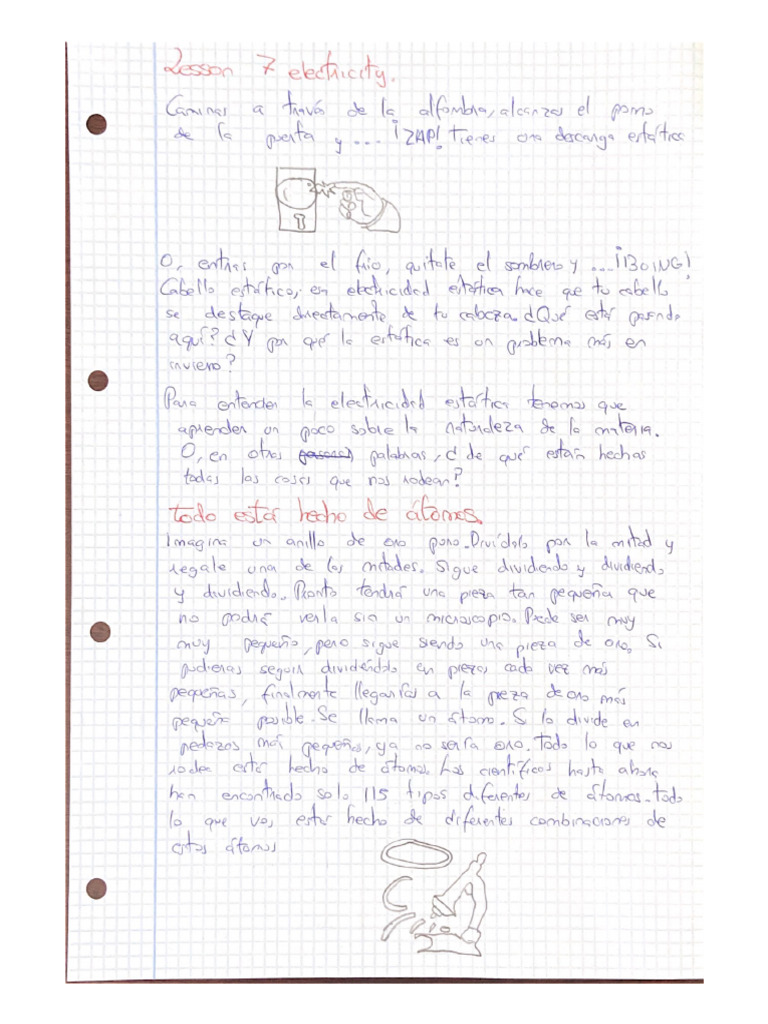 Lesson 7 electricity.
Caminas a través de la alfombra, alcanzas el pomo
de la puerta y ... ¡ZAP! Tienes una descarga estática
O, entras por el frío, quitate el sombrero y ...¡BOING!
Cabello estático, esa electricidad estática hace que tu cabello
se destaque directamente de tu cabeza. ¿Qué está pasando
aquí? ¿Y por qué la estática es un problema más en
invierno?
Para entender la electricidad estática tenemos que
aprender un poco sobre la naturaleza de la materia.
O, en otras palabras, ¿ de qué están hechas
todas las cosas que nos rodean?
todo está hecho de átomos.
Imagina un anillo de oro puro. Divídalo por la mitad y
regale una de las mitades. Sigue dividiendo y dividiendo
y dividiendo. Pronto tendrá una pieza tan pequeña que
no podrá verla sin un microscopio. Puede ser muy
muy pequeño, pero sigue siendo una pieza de oro. Si
pudieras seguir dividiéndolo en piezas cada vez más
pequeñas, finalmente llegarías a la pieza de oro más
pequeña posible. Se llama un átomo. Si lo divide en
pedazos más pequeños, ya no sería oro. Todo lo que nos
rodea está hecho de átomos. Los científicos hasta ahora
han encontrado solo 115 tipos diferentes de átomos. todo
lo que ves, está hecho de diferentes combinaciones de
estos átomos